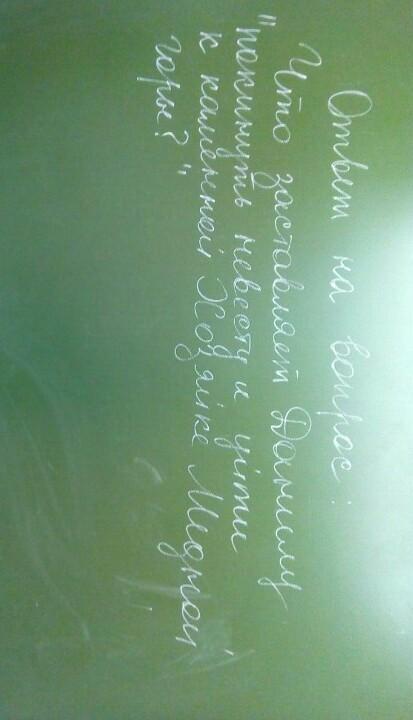 Ответ на вопрос:
Что заставляет Данилу
"покинуть невесту и уйти
к каменной Хозяйке Медной
горы?"